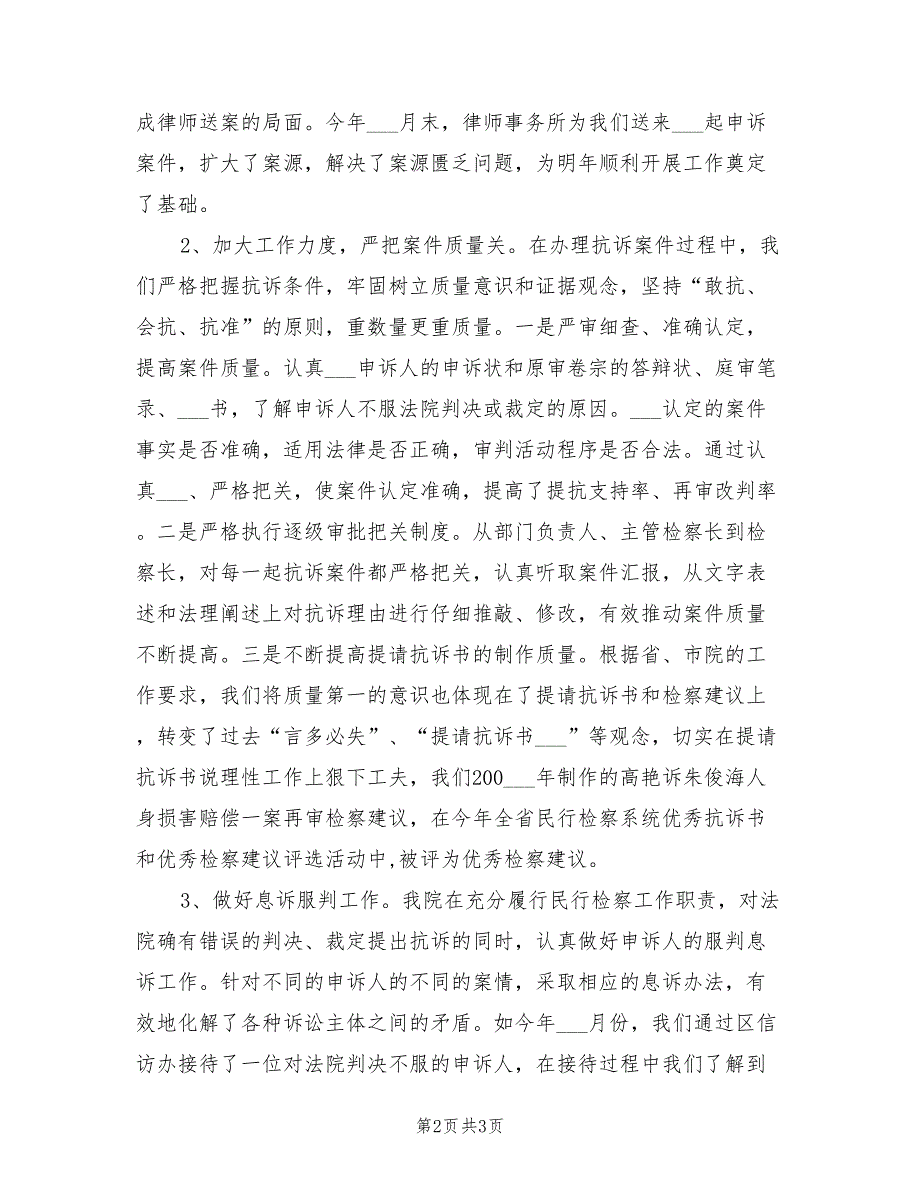 成律师送案的局面。今年___月末，律师事务所为我们送来___起申诉
案件，扩大了案源，解决了案源匮乏问题，为明年顺利开展工作奠定
了基础。
2、加大工作力度，严把案件质量关。在办理抗诉案件过程中，我
们严格把握抗诉条件，牢固树立质量意识和证据观念，坚持“敢抗、
会抗、抗准”的原则，重数量更重质量。一是严审细查、准确认定，
提高案件质量。认真___申诉人的申诉状和原审卷宗的答辩状、庭审笔
录、___书，了解申诉人不服法院判决或裁定的原因。___认定的案件
事实是否准确，适用法律是否正确，审判活动程序是否合法。通过认
真___、严格把关，使案件认定准确，提高了提抗支持率、再审改判率
。二是严格执行逐级审批把关制度。从部门负责人、主管检察长到检
察长，对每一起抗诉案件都严格把关，认真听取案件汇报，从文字表
述和法理阐述上对抗诉理由进行仔细推敲、修改，有效推动案件质量
不断提高。三是不断提高提请抗诉书的制作质量。根据省、市院的工
作要求，我们将质量第一的意识也体现在了提请抗诉书和检察建议上
，转变了过去“言多必失”、“提请抗诉书___”等观念，切实在提请
抗诉书说理性工作上狠下工夫，我们200___年制作的高艳诉朱俊海人
身损害赔偿一案再审检察建议，在今年全省民行检察系统优秀抗诉书
和优秀检察建议评选活动中,被评为优秀检察建议。
3、做好息诉服判工作。我院在充分履行民行检察工作职责，对法
院确有错误的判决、裁定提出抗诉的同时，认真做好申诉人的服判息
诉工作。针对不同的申诉人的不同的案情，采取相应的息诉办法，有
效地化解了各种诉讼主体之间的矛盾。如今年___月份，我们通过区信
访办接待了一位对法院判决不服的申诉人，在接待过程中我们了解到
第2页共3页